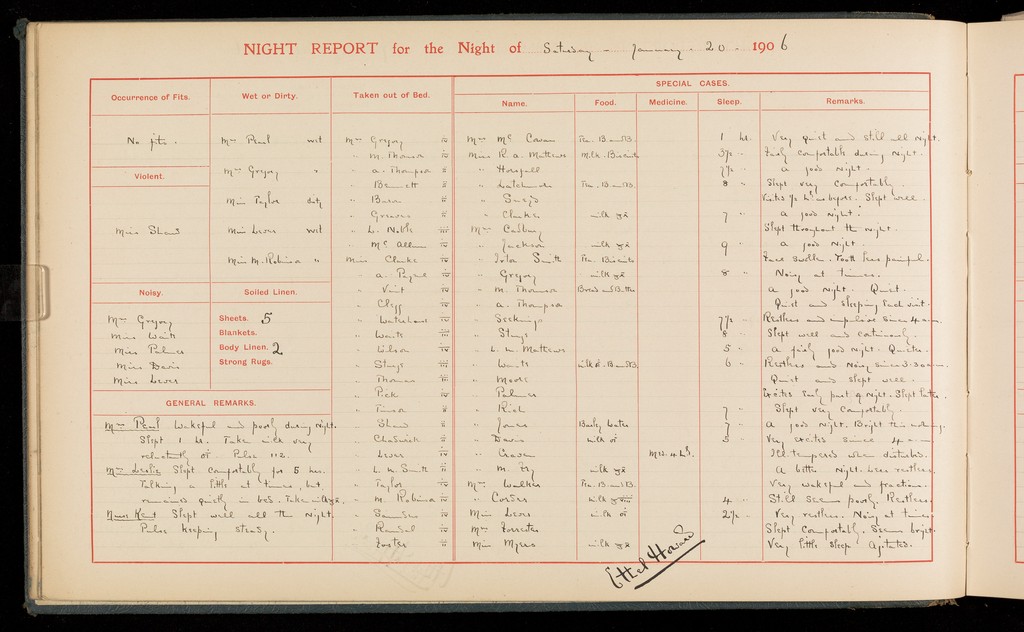 NIGHT REPORT for the Night of Saturday - January. 20. 1906
Occurrence of Fits.
No fits.
Violent.
Miss Shaw
Noisy.
Mrs Gregory
Miss Waite
Miss Palmer
Miss Davis
Miss Lever
Wet or Dirty.
Mrs Pearl wet
Mrs Gregory "
Miss Taylor dirty
Miss Lever wet
Miss M. Robina "
Soiled Linen.
Sheets. 5
Blankets.
Body Linen. 2
Strong Rugs.
GENERAL REMARKS.
Mrs Pearl Wakeful and poorly during night.
Slept 1 hr. Take milk very
reluctantly. Pulse 112.
Mrs Leslie Slept comfortably for 5 hrs.
Talking a little at times, but
remained quietly in bed. Take milk
Nurse Kent Slept well all the night.
Pulse keeping steady.
Taken out of Bed.
Mrs Gregory iv
" M. Thomson iv
" A. Thompson ii
" Bennett ii
" ii
" Greaves ii
" L. Noble iii
" McCallum iv
Miss Clarke iv
" A. Payne iv
" iv
" Clegg iv
" Waterhouse iv
" Waite iii
" iii
" iii
" Thomas iii
" Peck iv
" ii
" Shaw ii
" Chadwick ii
" Lever iii
" L. M. Smith ii
" Taylor iv
" M. Robina iv
" Saunders iv
" Randal iv
" Foster ii
SPECIAL CASES.
Name. Food. Medicine. Sleep. Remarks.
Mrs McCowan Tea. B and B. 1 hr. Very quiet and still all night.
Miss R. A. Mathews Milk. Biscuits 3½ " Fairly comfortable during night.
" Horsfall 7½ " A good night.
" Tea. B and B. 8 " Slept very comfortably.
" Slept well.
" Clarke milk 7 " A good night.
Mrs Cadbury Slept throughout the night.
" Jackson milk 9 " A good night.
" Smith Tea. Biscuits Face swollen. Tooth less painful.
" Gregory milk 8 " Noisy at times.
" M. Thomson Bread and Butter A good night. Quiet.
" A. Thompson Quiet and sleeping each visit.
" Seekings 7½ " Restless and impulsive since 4 a.m.
" 8 " Slept well and continuously.
" L. M. Mathews 5 " A fairly good night. Quieter.
" Waite milk B and B. 6 " Restless and Noisy since 3.30 a.m.
" Moore Quiet and slept well.
" Palmer Excited early part of night. Slept later.
" Rich 7 " Slept very comfortably.
" Jones Barley Water 7 " A good night. Bright this morning.
" Davis milk 5 " Very excited since 4 a.m.
" Craven Ill-tempered when disturbed.
" M. milk A better night. Less restless.
Mrs Walker Tea. B and B. Very wakeful and fractious.
" Corder milk 4 " Still seems poorly. Restless.
Miss Lever milk 2½ " Very restless. Noisy at times
Mrs Forrester Slept comfortably. Seems bright.
Miss Myers milk Very little sleep. Agitated.
Ethel Howard